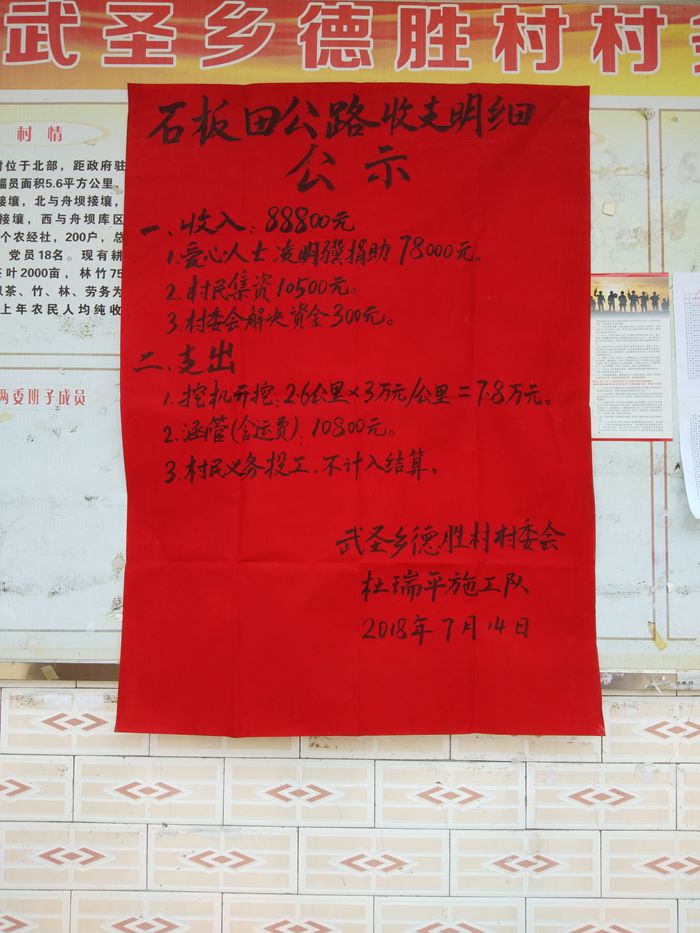 武圣乡德胜村村
村 情
村位于北部，距政府驻
幅员面积5.6平方公里，
接壤，北与舟坝接壤，
接壤，西与舟坝库区
个农经社，200户，总
党员18名。现有耕
茶叶2000亩，林竹75
以茶、竹、林、劳务为
上年农民人均纯收
两委班子成员
石板田公路收支明细
公示
一、收入：88800元
1.爱心人士凌明骥捐助78000元。
2.村民集资10500元。
3.村委会解决资金300元。
二、支出
1.挖机开挖：2.6公里×3万元/公里=7.8万元。
2.涵管(含运费)：10800元。
3.村民义务投工，不计入结算。
武圣乡德胜村村委会
杜瑞平施工队
2018年7月14日